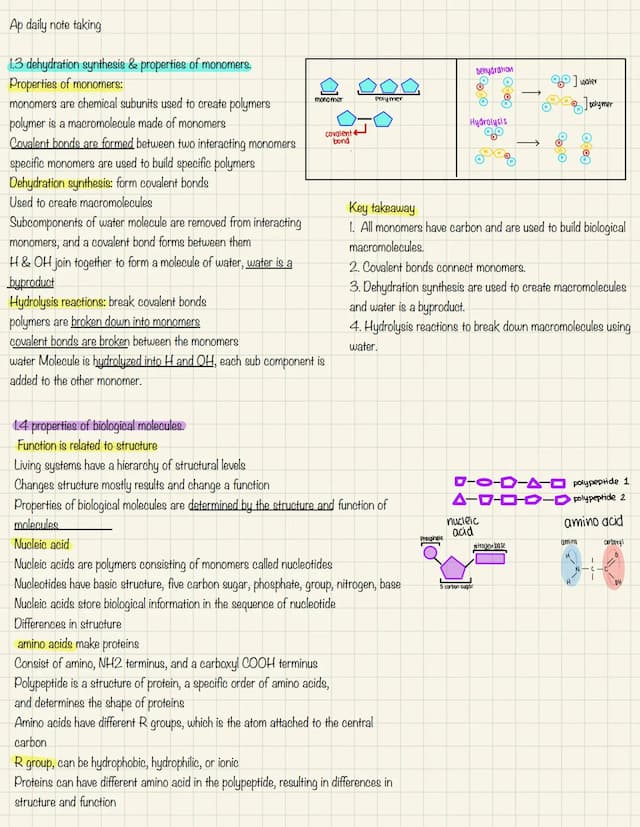 Ap daily note taking
1.3 dehydration synthesis & properties of monomers.
Properties of monomers:
monomers are chemical subunits used to create polymers
polymer is a macromolecule made of monomers
Covalent bonds are formed between two interacting monomers
specific monomers are used to build specific polymers
Dehydration synthesis: form covalent bonds
Used to create macromolecules
Subcomponents of water molecule are removed from interacting
monomers, and a covalent bond forms between them
H & OH join together to form a molecule of water, water is a
byproduct
Hydrolysis reactions: break covalent bonds
polymers are broken down into monomers
covalent bonds are broken between the monomers
water Molecule is hydrolyzed into H and OH, each sub component is
added to the other monomer.
monomer
polymer
covalent
bond
Dehydration
water
polymer
Hydrolysis
Key takeaway
1. All monomers have carbon and are used to build biological
macromolecules.
2. Covalent bonds connect monomers.
3. Dehydration synthesis are used to create macromolecules
and water is a byproduct.
4. Hydrolysis reactions to break down macromolecules using
water.
1.4 properties of biological molecules.
Function is related to structure
Living systems have a hierarchy of structural levels
Changes structure mostly results and change a function
Properties of biological molecules are determined by the structure and function of
molecules
Nucleic acid
Nucleic acids are polymers consisting of monomers called nucleotides
Nucleotides have basic structure, five carbon sugar, phosphate, group, nitrogen, base
Nucleic acids store biological information in the sequence of nucleotide
Differences in structure
amino acids make proteins
Consist of amino, NH2 terminus, and a carboxyl COOH terminus
Polypeptide is a structure of protein, a specific order of amino acids,
and determines the shape of proteins
Amino acids have different R groups, which is the atom attached to the central
carbon
R group, can be hydrophobic, hydrophilic, or ionic
Proteins can have different amino acid in the polypeptide, resulting in differences in
structure and function
polypeptide 1
polypeptide 2
nucleic
acid
phosphate
nitrogen base
5 carbon sugar
amino acid
amino
carboxyl
H
N
H
C
C
O
OH